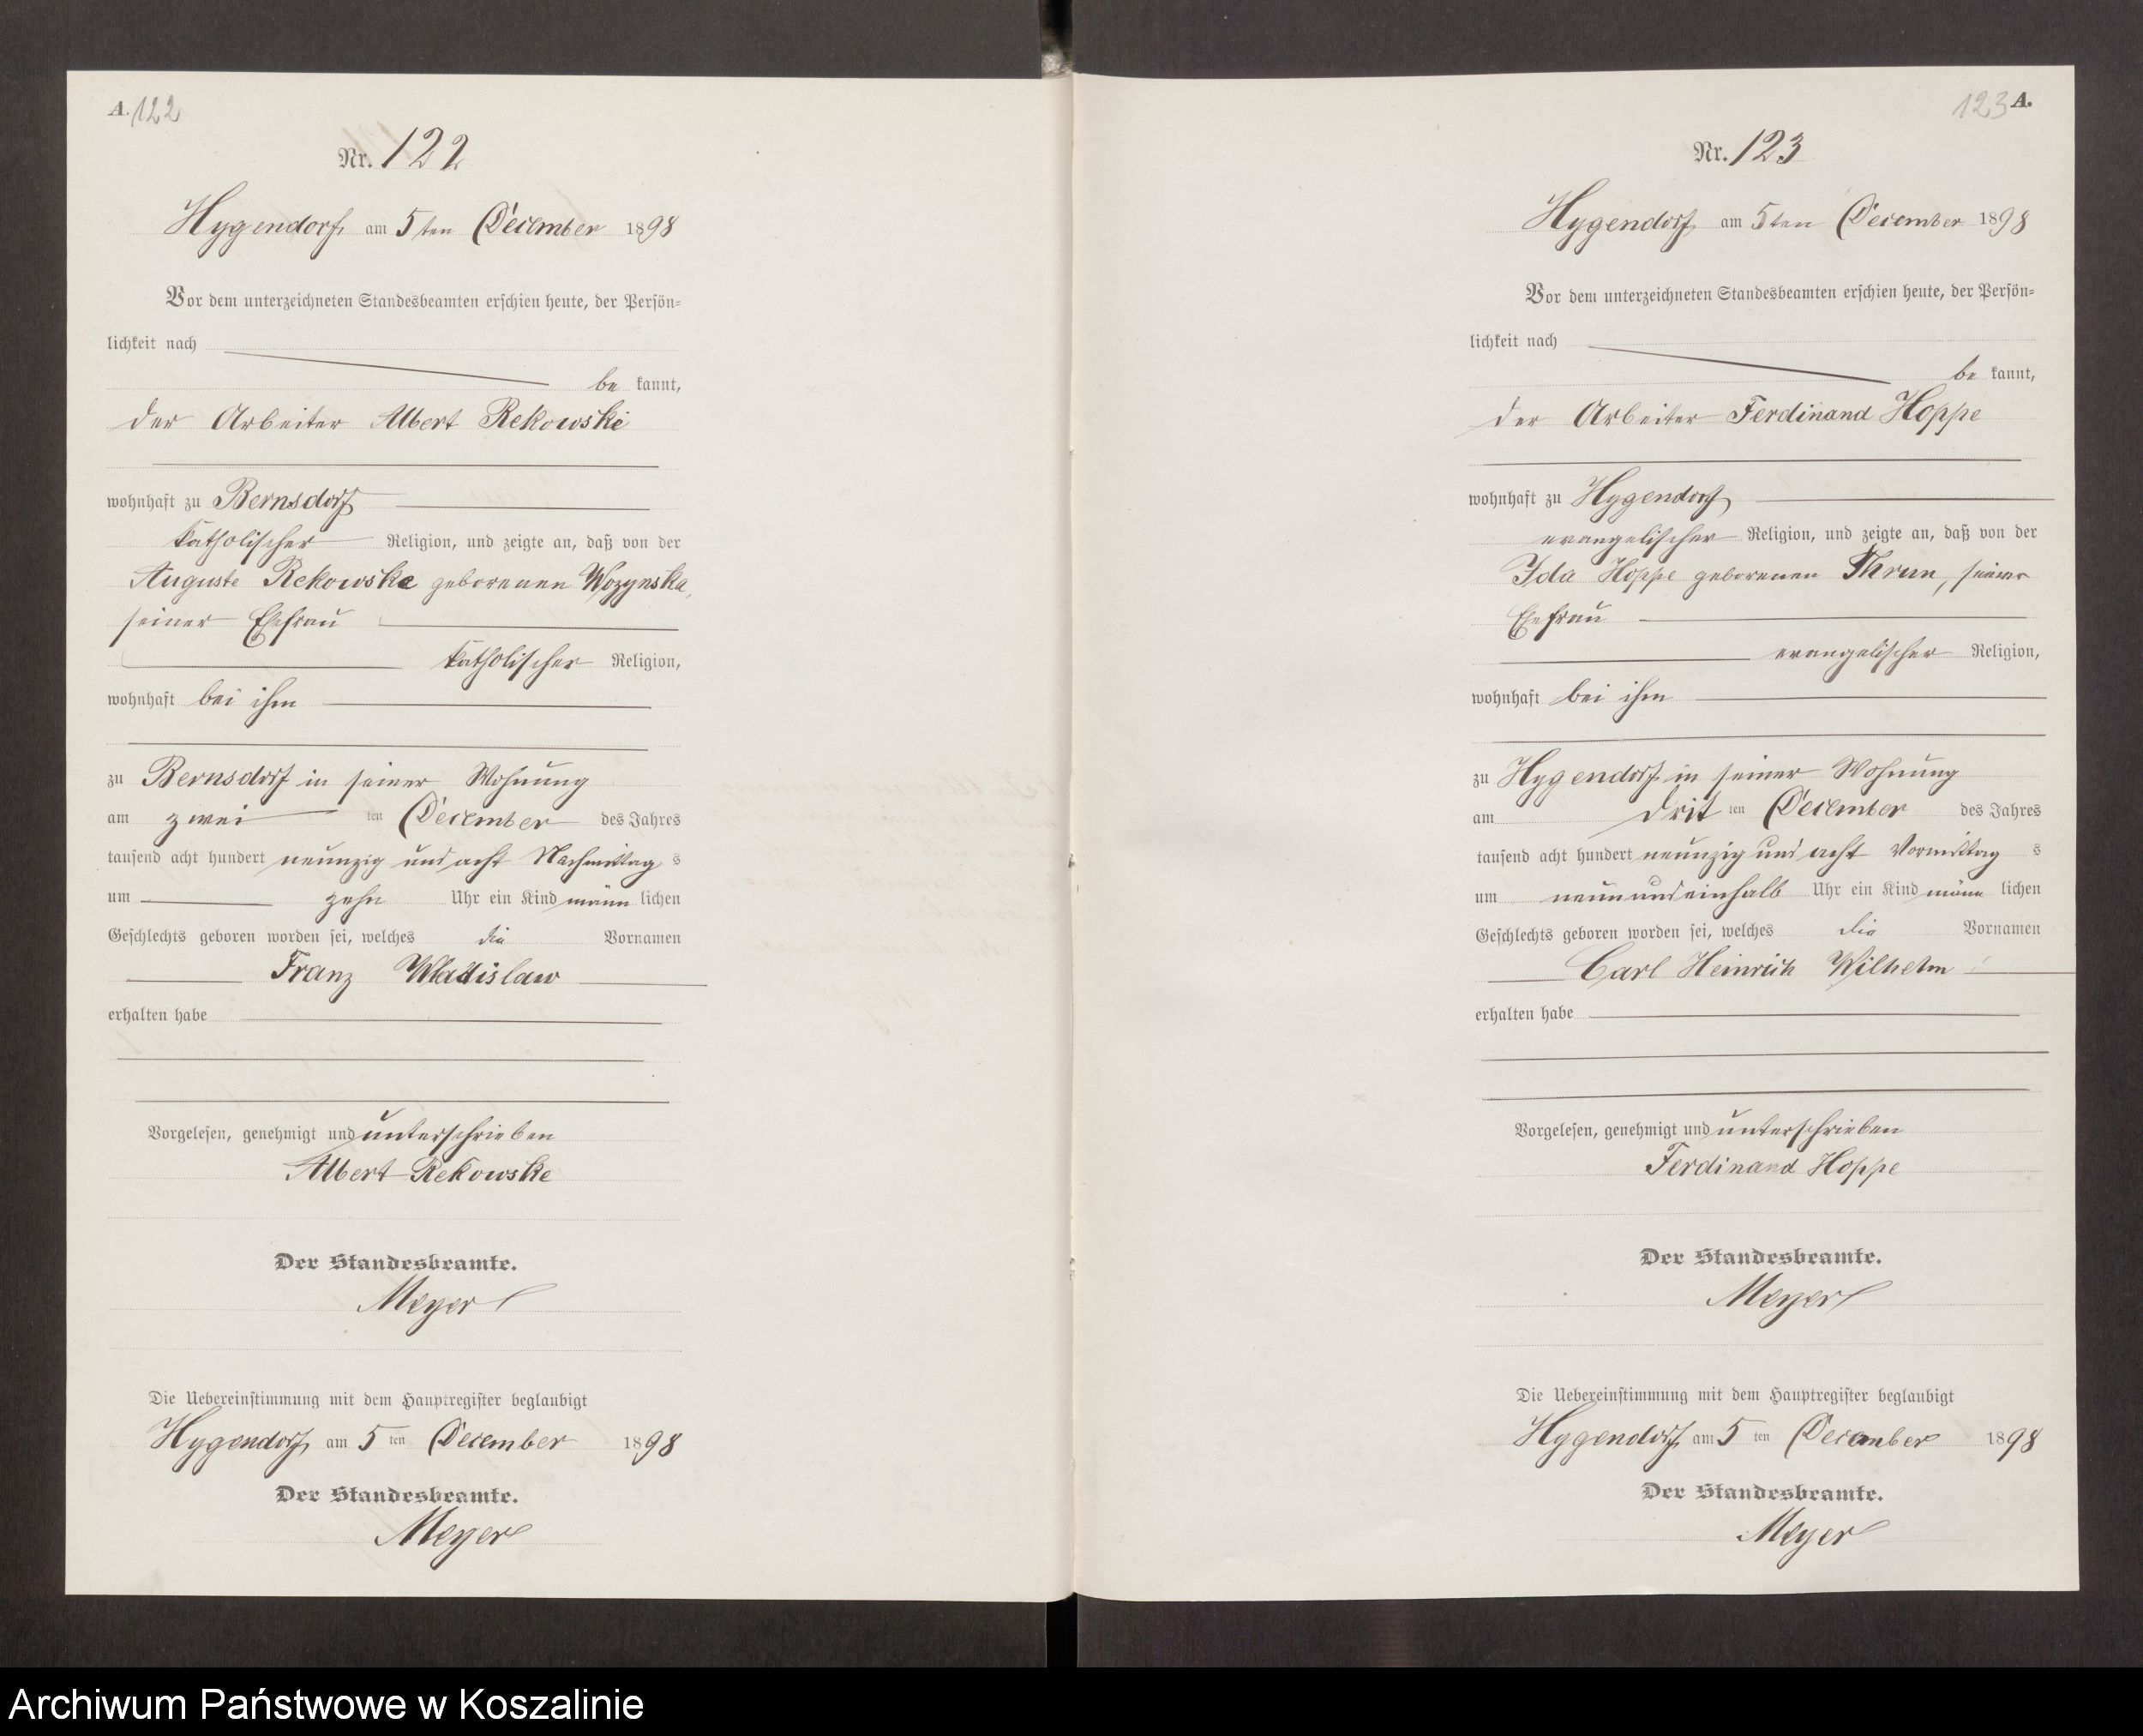 A. 122
Nr. 122
Hygendorf, am 5ten December 1898
Vor dem unterzeichneten Standesbeamten erschien heute, der Persön-
lichkeit nach
be kannt,
der Arbeiter Albert Rekowski
wohnhaft zu Bernsdorf
katholischer Religion, und zeigte an, daß von der
Auguste Rekowske geborenen Wozynska,
seiner Ehefrau
katholischer Religion,
wohnhaft bei ihm
zu Bernsdorf in seiner Wohnung
am zwei ten December des Jahres
tausend acht hundert neunzig und acht Nachmittag s
um zehn Uhr ein Kind männ lichen
Geschlechts geboren worden sei, welches die Vornamen
Franz Wladislaw
erhalten habe
Vorgelesen, genehmigt und unterschrieben
Albert Rekowske
Der Standesbeamte.
Meyer
Die Uebereinstimmung mit dem Hauptregister beglaubigt
Hygendorf, am 5 ten December 1898
Der Standesbeamte.
Meyer
123 A.
Nr. 123
Hygendorf, am 5ten December 1898
Vor dem unterzeichneten Standesbeamten erschien heute, der Persön-
lichkeit nach
be kannt,
der Arbeiter Ferdinand Hoppe
wohnhaft zu Hygendorf
evangelischer Religion, und zeigte an, daß von der
Ida Hoppe geborenen Thrun, seiner
Ehefrau
evangelischer Religion,
wohnhaft bei ihm
zu Hygendorf in seiner Wohnung
am drit ten December des Jahres
tausend acht hundert neunzig und acht Vormittag s
um neunundeinhalb Uhr ein Kind männ lichen
Geschlechts geboren worden sei, welches die Vornamen
Carl Heinrich Wilhelm
erhalten habe
Vorgelesen, genehmigt und unterschrieben
Ferdinand Hoppe
Der Standesbeamte.
Meyer
Die Uebereinstimmung mit dem Hauptregister beglaubigt
Hygendorf, am 5 ten December 1898
Der Standesbeamte.
Meyer
Archiwum Państwowe w Koszalinie